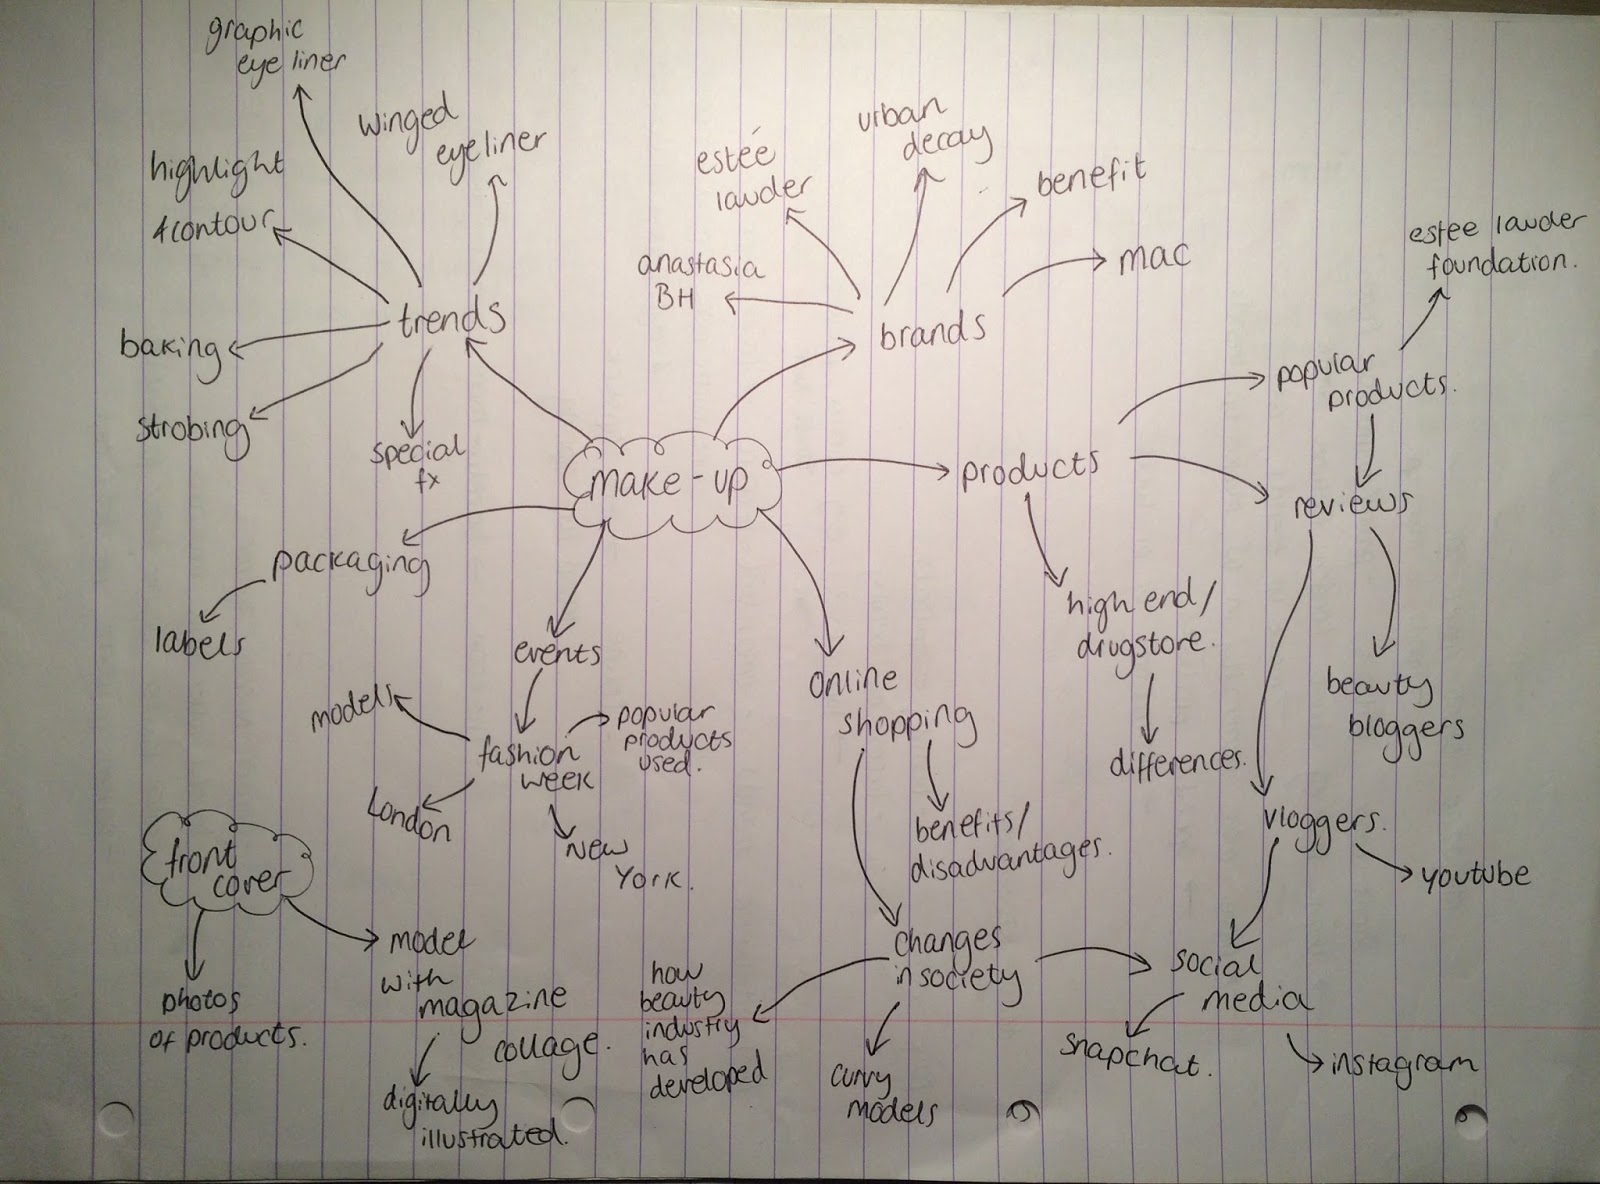 graphic
eye liner
winged
eyeliner
highlight
& contour
baking
strobing
special
fx
trends
estéé
lauder
urban
decay
benefit
mac
anastasia
BH
brands
estee lauder
foundation.
popular
products.
make-up
products
reviews
high end/
drugstore.
differences.
beauty
bloggers
vloggers.
youtube
packaging
labels
events
models
fashion
week
popular
products
used.
London
New
York.
online
shopping
benefits/
disadvantages.
changes
in society
social
media
snapchat.
instagram
how
beauty
industry
has
developed
curvy
models
front
cover
photos
of products.
model
with
magazine
collage.
digitally
illustrated.